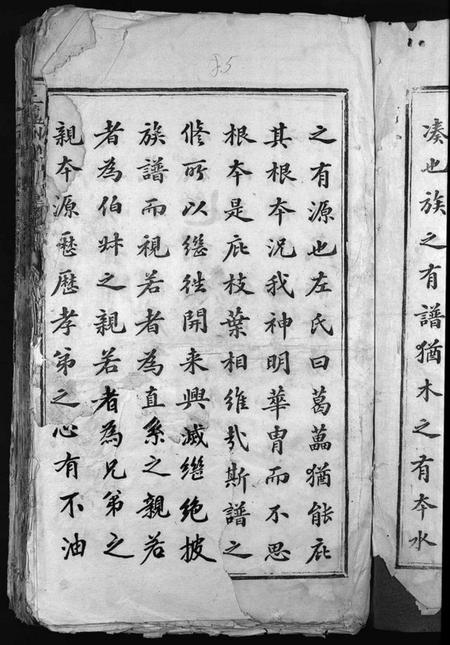 湊也族之有譜猶木之有夲水
之有源也左氏曰葛藟猶能庇
其根夲況我神明華胄而不思
根夲是庇枝葉相維哉斯譜之
修所以繼徃開来興滅繼絶披
族譜而視若者為直系之親若
者為伯叔之親若者為兄弟之
親夲源歷歷孝弟之心有不油
35